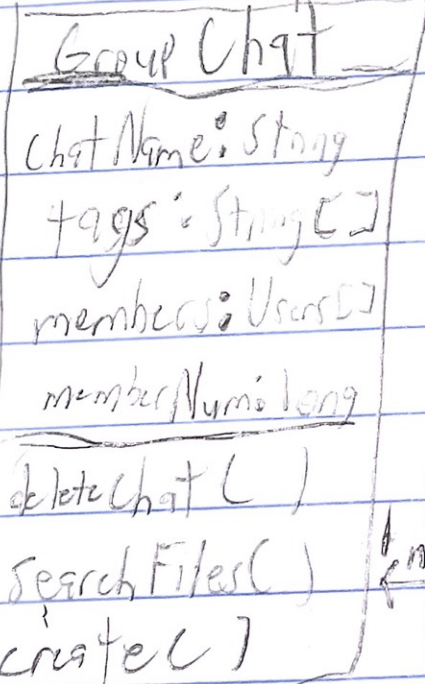 Group Chat
chatName: String
tags: String[]
members: Users[]
memberNum: long
deleteChat( )
searchFiles( )
create( )
n